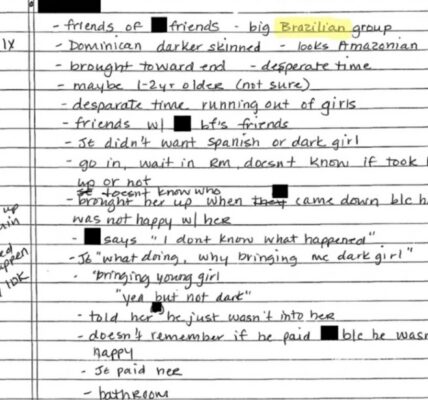 - friends of friends - big Brazilian group
1x - Dominican darker skinned - looks Amazonian
- brought toward end - desperate time
- maybe 1-2yr older (not sure)
- desparate time running out of girls
- friends w/ bf's friends
- Je didn't want spanish or dark girl
- go in, wait in Rm, doesnt know if took
up or not
doesnt know who
up - brought her up when they came down b/c h
ain was not happy w/ her
ed - says "I dont know what happened"
appen - Je "what doing, why bringing me dark girl"
IDK - "bringing young girl
"yea but not dark"
- told her he just wasn't into her
- doesn't remember if he paid b/c he wasn
happy
- Je paid her
- bathroom